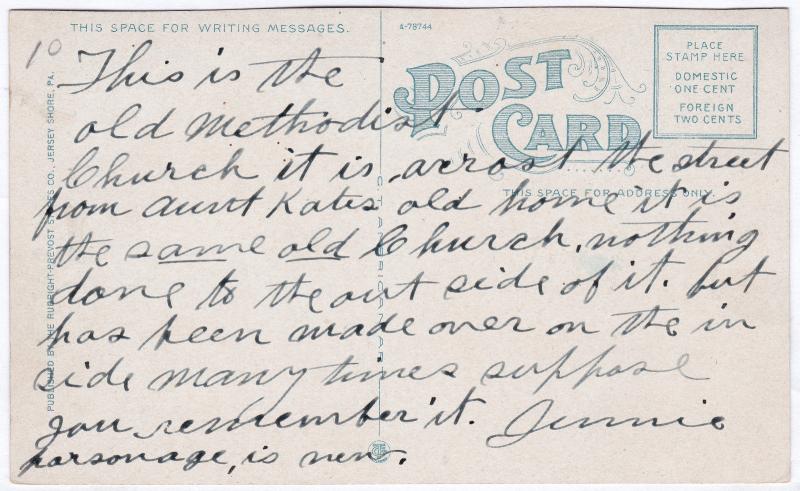 THIS SPACE FOR WRITING MESSAGES.
A-78744
10
POST
CARD
PLACE
STAMP HERE
DOMESTIC
ONE CENT
FOREIGN
TWO CENTS
THIS SPACE FOR ADDRESS ONLY
This is the
old Methodist
Church it is acrost the street
from aunt Kates old home it is
the same old Church, nothing
done to the out side of it. but
has been made over on the in
side many times suppose
you remember it. Jennie
parsonage, is new.
PUBLISHED BY THE RUBRIGHT-PREVOST CO., JERSEY SHORE, PA.